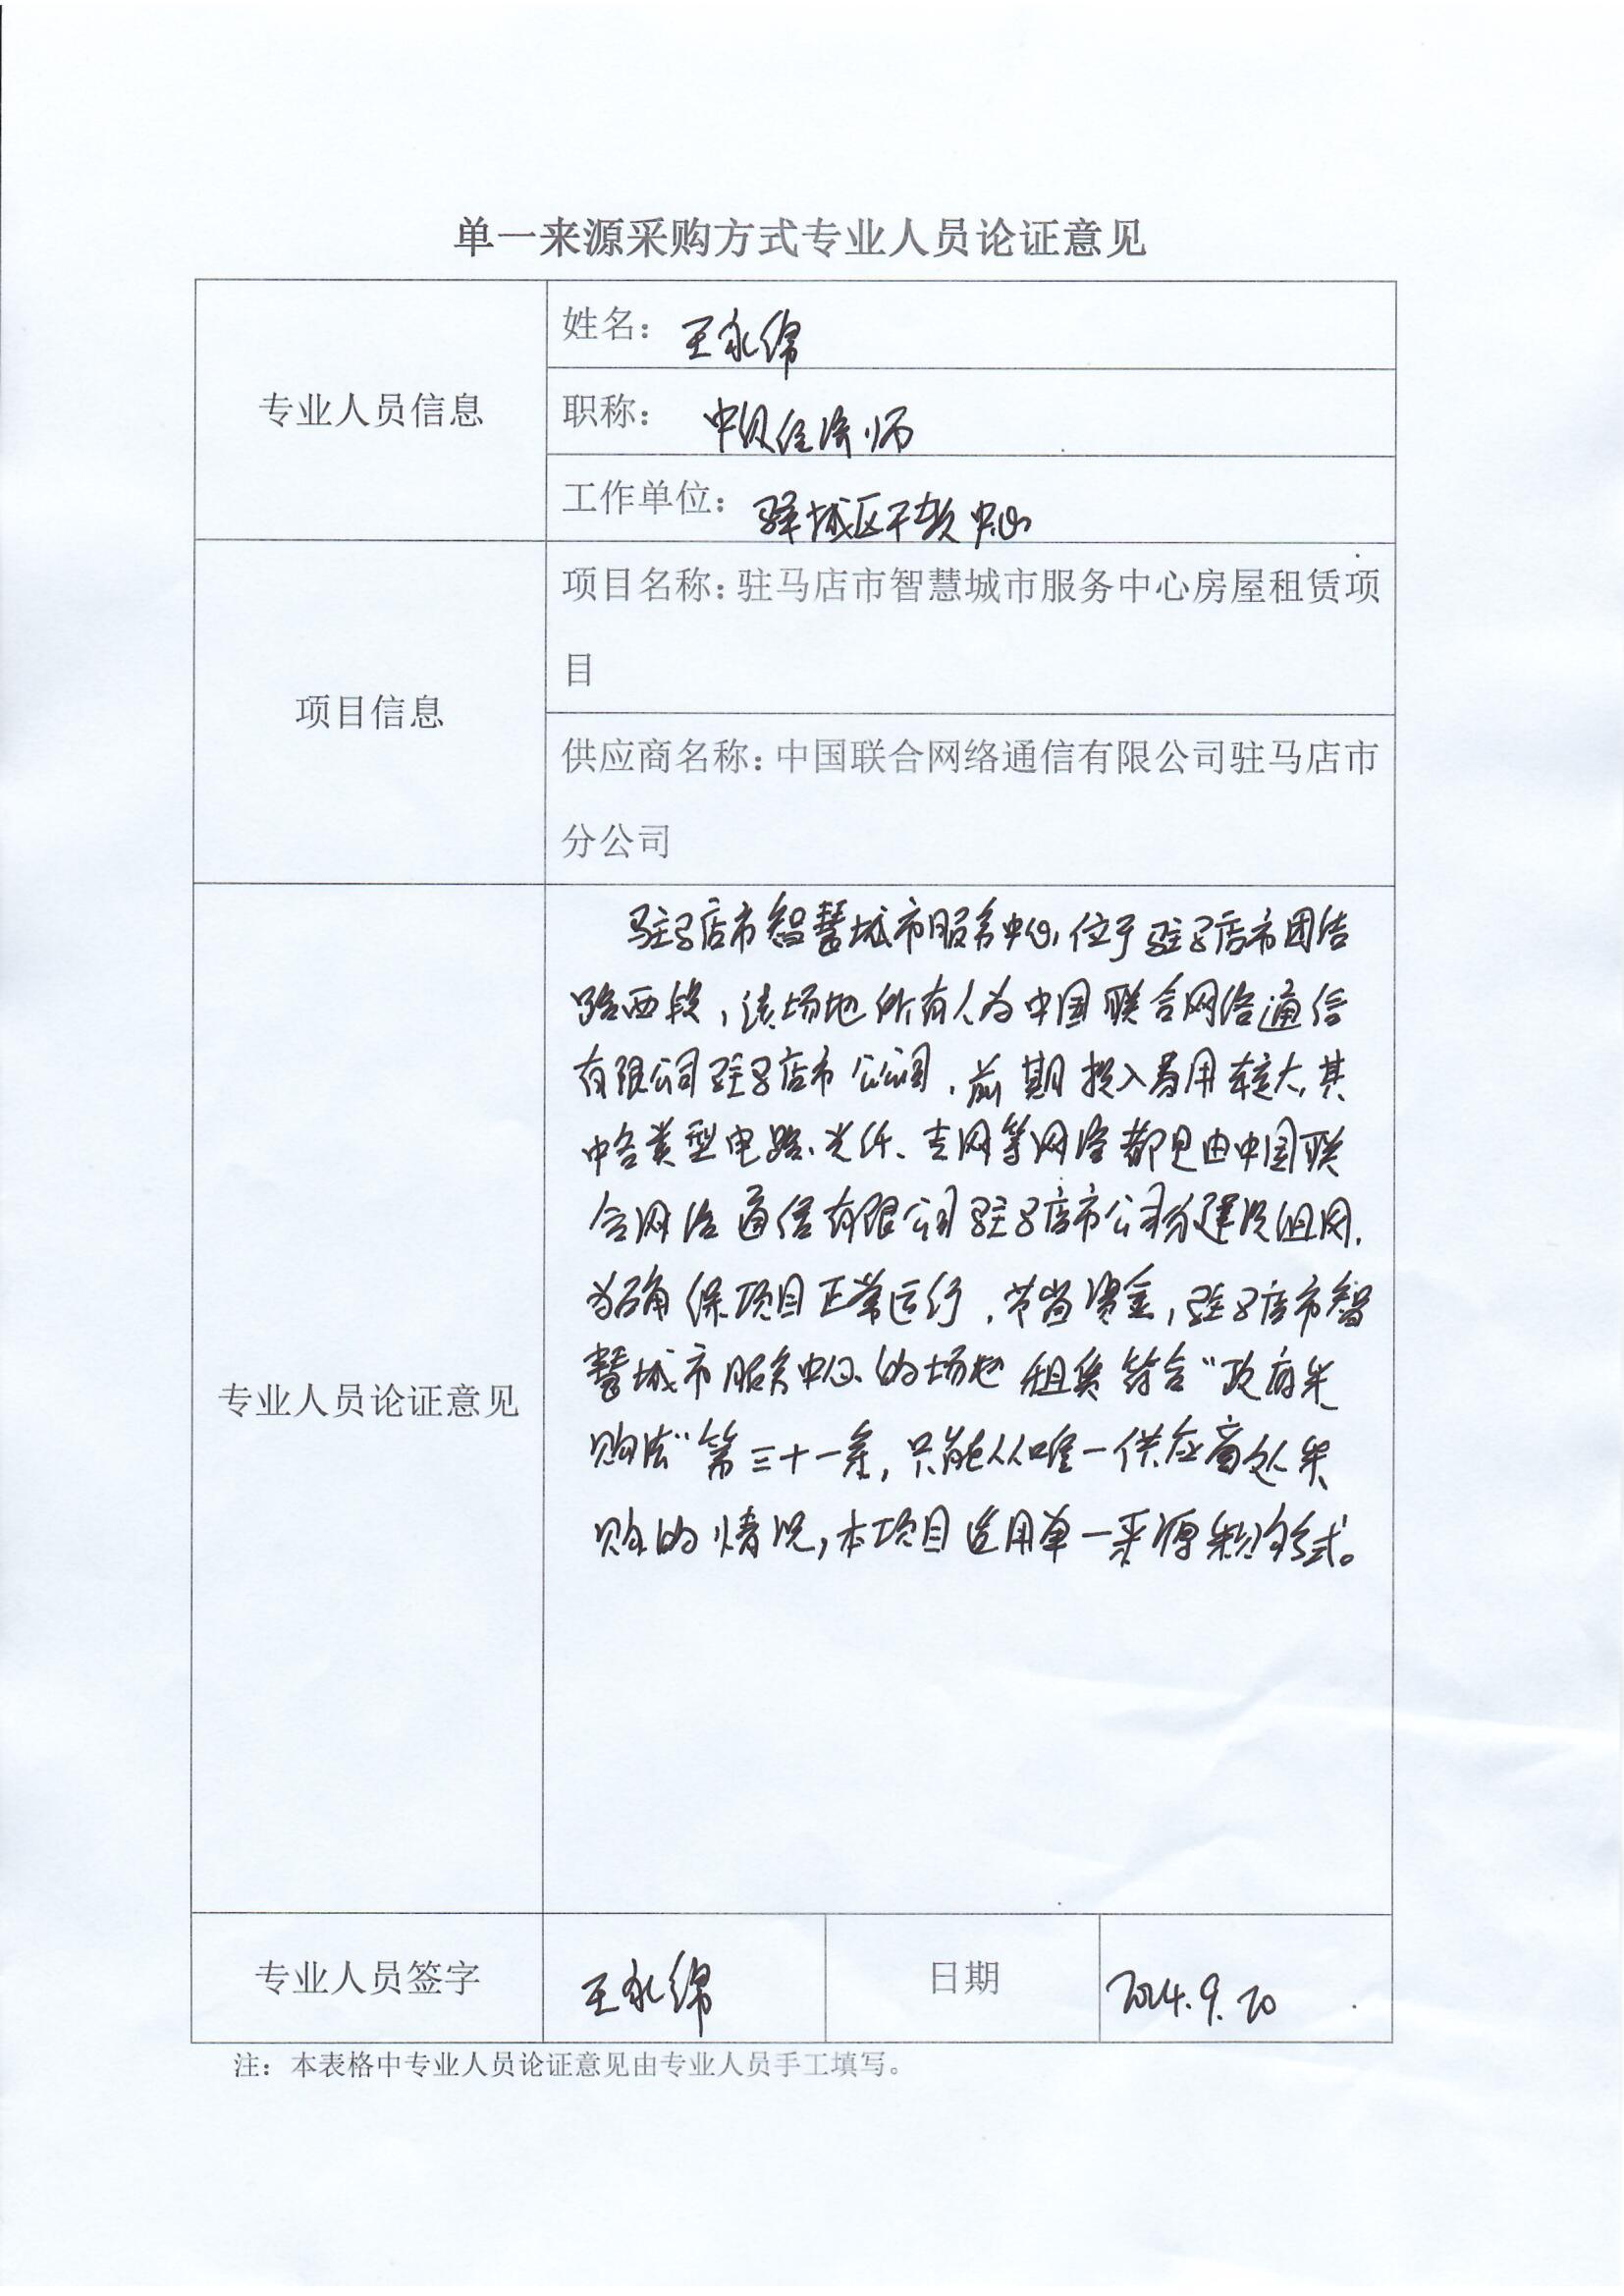 单一来源采购方式专业人员论证意见
专业人员信息
姓名：王永绵
职称：中级经济师
工作单位：驿城区干教中心
项目信息
项目名称：驻马店市智慧城市服务中心房屋租赁项
目
供应商名称：中国联合网络通信有限公司驻马店市
分公司
专业人员论证意见
驻马店市智慧城市服务中心，位于驻马店市团结
路西段，该场地所有人为中国联合网络通信
有限公司驻马店市分公司，前期投入费用较大，其
中各类型电路、光纤、专网等网络都是由中国联
合网络通信有限公司驻马店市公司建设组网，
为确保项目正常运行，节省资金，驻马店市智
慧城市服务中心的场地租赁符合“政府采
购法”第三十一条，只能从唯一供应商处采
购的情况，本项目适用单一来源采购形式。
专业人员签字
王永绵
日期
2024.9.20
注：本表格中专业人员论证意见由专业人员手工填写。